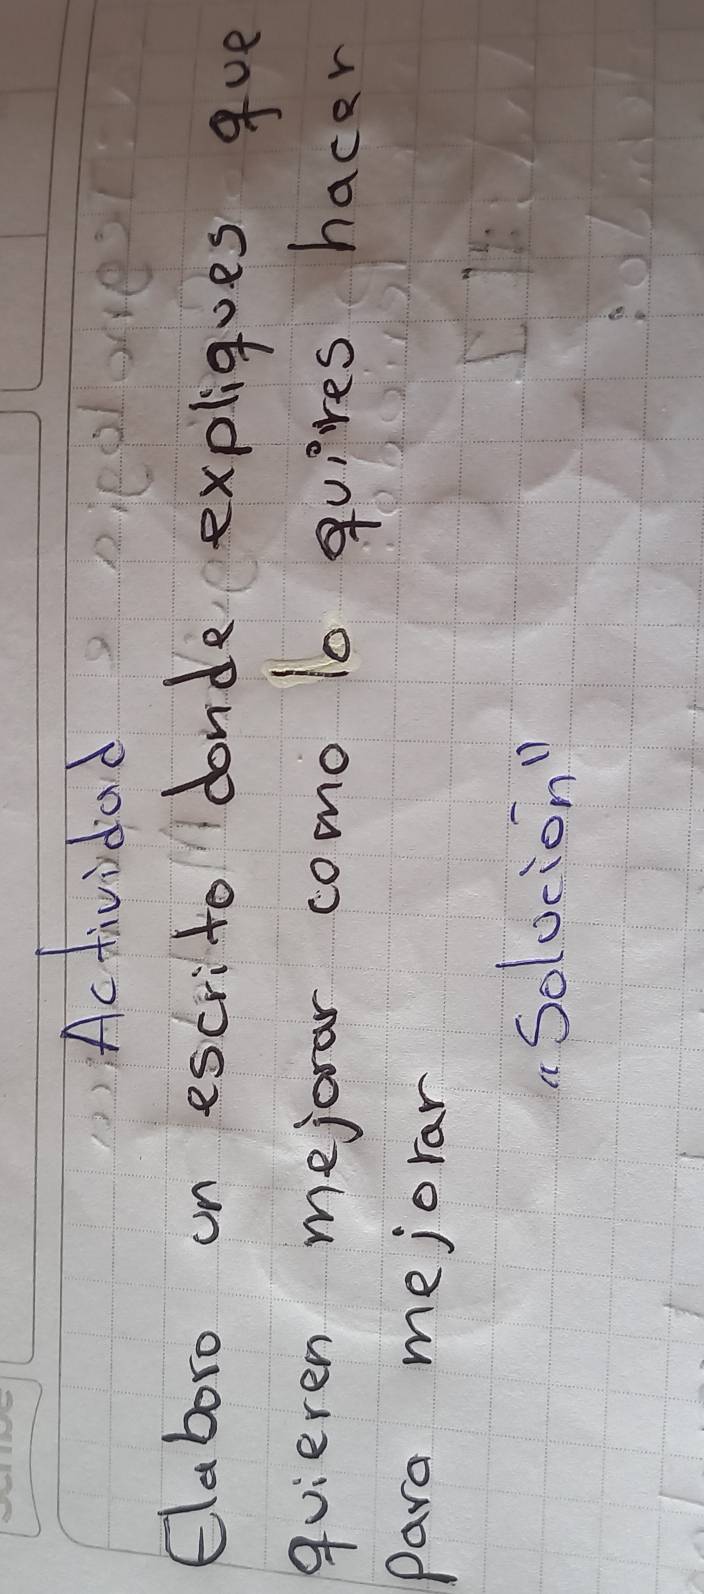 Actividad
Elaboro un escrito donde expliques que
quieren mejorar como lo quires hacer
para mejorar
"Solución"